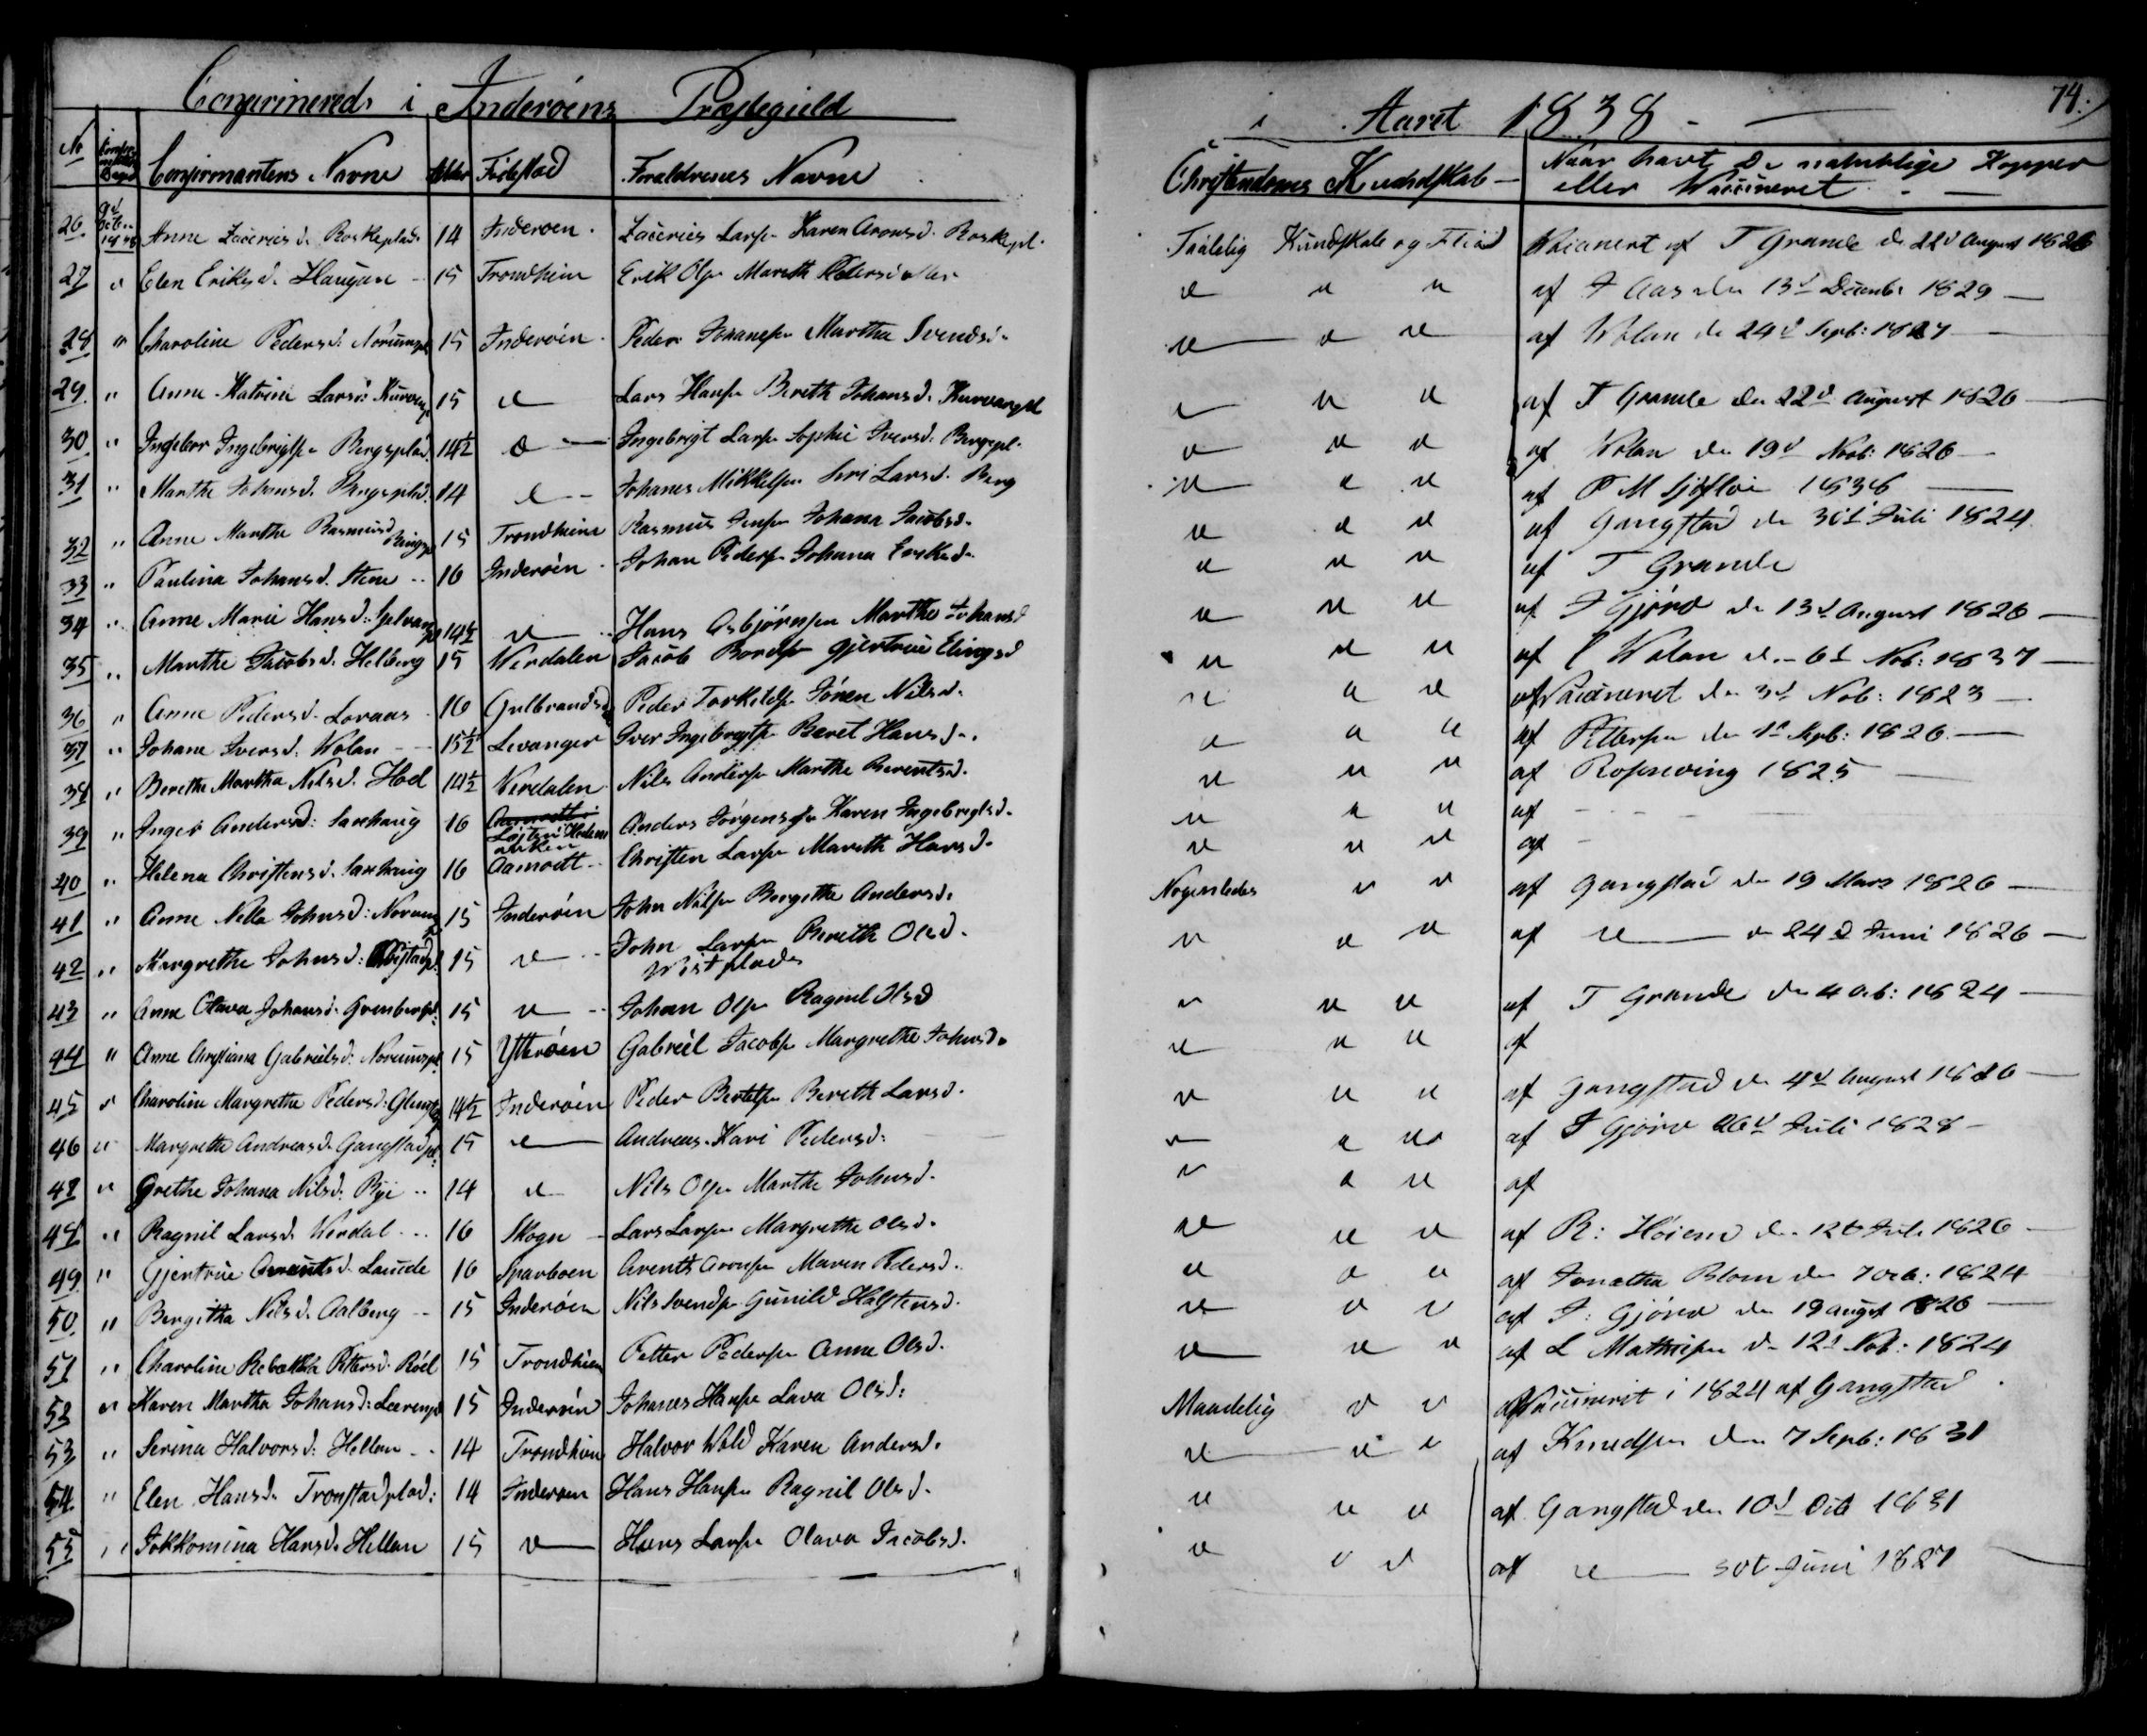 Confirmerede i Inderøens Præstegield
i Aaret 1838 74.
No Confirmantens Navne Alder Fødested Forældrenes Navne Christendoms Kundskab Naar havt de naturlige Kopper
eller Vaccineret
26. Anne Zacerias d. Roskeplad. 14 Inderøen Zacerias Larsn Karen Aronsd. Roskepl. Taalelig Kundskab og Fliid Vaccinert af T Grande d. 22d August 1826
27 " Elen Eriksd. Haugan 15 Trondhiem Erik Olsn Mareth Pedersdatter " " " af J Aas den 13d Decemb. 1829
28 " Charoline Pedersd: 15 Inderøen Peder Johanesn Martha Svendsd. " " " af Wolan d. 24d Sept: 1827
29. " Anne Katrine Larsd: 15 " Lars Hansn Bereth Johansd. " " " af T Grande den 22d August 1826
30 " Ingebor Ingebrigtsn Bergsplad. 14½ " Ingebrigt Larsn Sophie Iversd. Bergspl. " " " af Wolan den 19d Novb: 1826
31 " Marthe Johansd. Bergsplad. 14 " Johanes Mikkelsen Siri Larsd. Berg " " " af P M 1836
32 " Anne Marthe Rasmusd. 15 Trondhiem Rasmus Jensn Johana Jacobsd. " " " af Gangstad den 30t Juli 1824
33 " Paulina Johansd. Stene 16 Inderøen Johan Pedersn Johana " " " af T Grande
34 " Anne Marie Hansd: 14½ " Hans Asbjørnsen Marthe Johansd " " " af J Gjørv d. 13d August 1826
35 " Marthe Jacobsd. Helberg 15 Verdalen Jacob Bordsn Gjertrue Elingsd " " " af E Wolan d. 6t Nob: 1837
36 " Anne Pedersd. Loraas 16 Gulbrandsd. Peder Torkildsn Sønen Nilsd. " " " af Vaccineret den 3d Nob: 1823
37 " Johane Iversd: Wolan 15½ Levanger Iver Ingebrigtsn Beret Hansd. " " " af Pettersen den 1d Sepb: 1826
38 " Berethe Martha Nilsd. Hod 14½ Verdalen Nils Andersn Marthe Berentsd. " " " af 1825
39 " Inger Andersd: Saxhaug 16 Løiten i Hedemarken Anders Jørgensen Karen Ingebrigtsd. " " " af
40 " Helena Christensd. Saxhaug 16 Aamodt Christen Larsn Mareth Hansd. " " " af
41 " Anne Nella Johnsd: 15 Inderøen John Nilsn Bergithe Andersd. Nogenledes " " af Gangstad den 19 Mars 1826
42 " Margrethe Johnsd: 15 " John Larsn Bereth Olsd.
Wistplads " " " af " d 24d Juni 1826
43 " Anne Olava Johansd. 15 " Johan Olsn Ragnil Olsd " " " af T Grande den 4 Octb: 1824
44 " Anne Christiana Gabrielsd: 15 Ytterøen Gabriel Jacobsn Margrethe Johnsd. " " " af
45 " Charoline Margrethe Pedersd: 14½ Inderøen Peder Bertelsn Bereth Larsd. " " " af Gangstad den 4d August 1826
46 " Margretha Andreasd. Gangstadpl: 15 " Andreas. Kari Pedersd: " " " af J Gjørv 26d Juli 1828
47 " Grethe Johana Nilsd: Bye 14 " Nils Olsn Marthe Johnsd. " " " af
48 " Ragnil Larsd. Verdal 16 Skogn Lars Larsn Margrethe Olsd. " " " af R: Høiem d. 12t Juli 1826
49 " Gjertrue Arentsd. Lande 16 Sparboen Arent Aronsn Maren Pedersd. " " " af Jonatha Blom den 7 Octb: 1824
50 " Bergitha Nilsd. Aalberg 15 Inderøen Nils Svendsn Gunild Halstensd. " " " af J. Gjørv den 19 august 1826
51 " Charoline Rebekka Pettersd. Røel 15 Trondhiem Petter Pedersn Anne Olsd. " " " af L Mathisen d. 12t Nob: 1824
52 " Karen Martha Johansd: 15 Inderøen Johanes Hansn Lava Olsd: Maadelig " " af Vaccineret i 1824 af Gangstad
53 " Serina Halvorsd: Hellem 14 Trondhiem Halvor Wold Karen Andersd. " " " af Knudsen den 7 Sepb: 1831
54 " Elen Hansd. Tronstadplad: 14 Inderøen Hans Hansn Ragnil Olsd. " " " af Gangstad den 10d Octb 1831
55 " Jokkomina Hansd. Hellem 15 " Hans Larsn Olava Jacobsd. " " " af " 30t Juni 1827